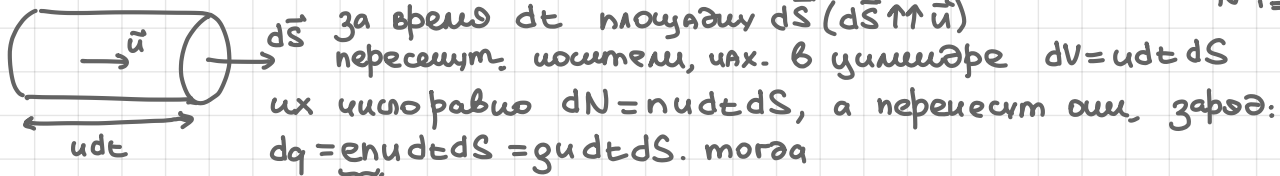 за время dt площадку dS⃗ (dS⃗ ↑↑ u⃗)
u⃗ dS⃗ пересекут носители, нах. в цилиндре dV = udt dS
их число равно dN = nudtdS, а перенесут они заряд:
udt dq = enudtdS = ρudtdS. тогда